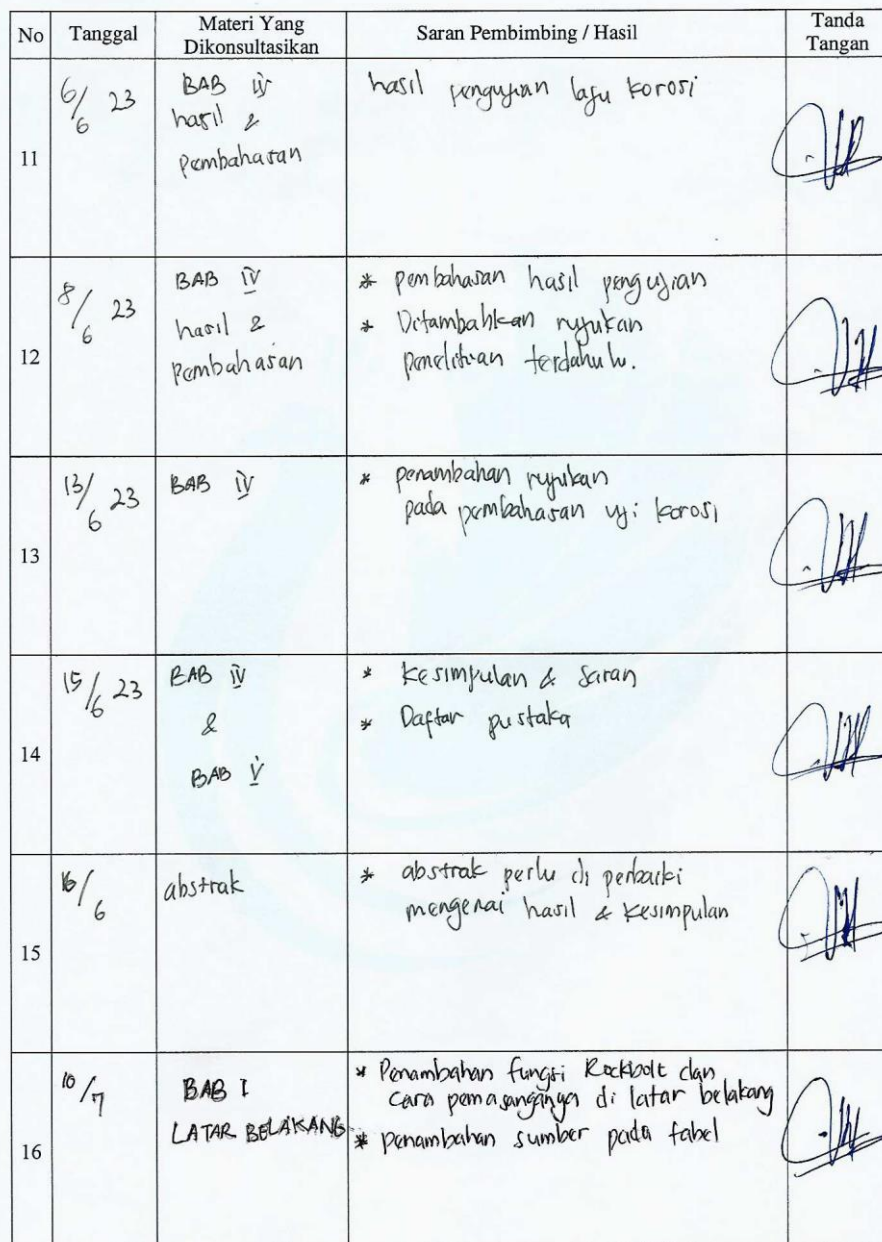 No
Tanggal
Materi Yang
Dikonsultasikan
Saran Pembimbing / Hasil
Tanda
Tangan
11
6/6 23
BAB IV
hasil &
pembahasan
hasil pengujian laju korosi
12
8/6 23
BAB IV
hasil &
pembahasan
* pembahasan hasil pengujian
* Ditambahkan rujukan
penelitian terdahulu.
13
13/6 23
BAB IV
* penambahan rujukan
pada pembahasan uji korosi
14
15/6 23
BAB IV
&
BAB V
* Kesimpulan & Saran
* Daftar pustaka
15
16/6
abstrak
* abstrak perlu di perbaiki
mengenai hasil & kesimpulan
16
10/7
BAB I
LATAR BELAKANG
* Penambahan fungsi Rockbolt dan
cara pemasanganya di latar belakang
* Penambahan sumber pada tabel